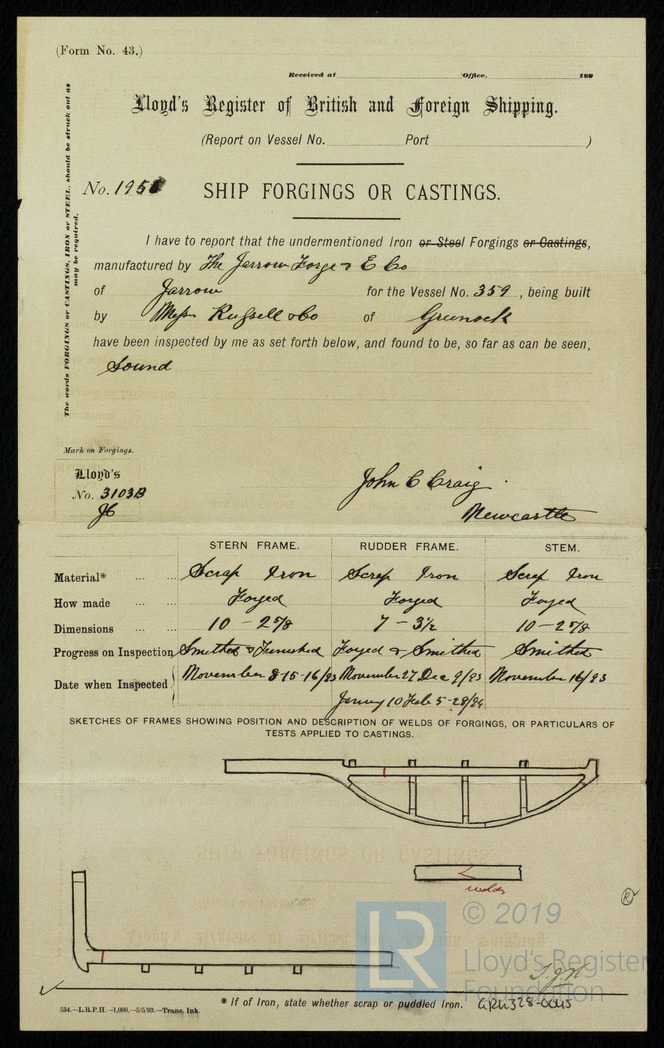 (Form No. 43.)
Received at Office, 189
Lloyd's Register of British and Foreign Shipping.
(Report on Vessel No. Port )
No. 195
SHIP FORGINGS OR CASTINGS.
The words FORGINGS or CASTINGS, IRON or STEEL, should be struck out as
may be required.
I have to report that the undermentioned Iron or Steel Forgings or Castings,
manufactured by The Jarrow Forge & E Co
of Jarrow for the Vessel No. 359, being built
by Messrs Russell & Co of Greenock
have been inspected by me as set forth below, and found to be, so far as can be seen,
Sound
Mark on Forgings.
Lloyd's
No. 3103B
JC
John C Craig
Newcastle
STERN FRAME. RUDDER FRAME. STEM.
Material* ... ... Scrap Iron Scrap Iron Scrap Iron
How made ... ... Forged Forged Forged
Dimensions ... ... 10 - 2 5/8 7 - 3 1/2 10 - 2 5/8
Progress on Inspection Smithed & Finished Forged & Smithed Smithed
Date when Inspected November 8-15-16/93 November 27 Dec 9/93 November 16/93
10 Feb 5-28/94
SKETCHES OF FRAMES SHOWING POSITION AND DESCRIPTION OF WELDS OF FORGINGS, OR PARTICULARS OF
TESTS APPLIED TO CASTINGS.
welds
R
LR
© 2019
Lloyd's Register
Foundation
* If of Iron, state whether scrap or puddled iron.
GRK328-0045
534.—L.R.P.H.—1,000.—5/5/93.—Trans. Ink.